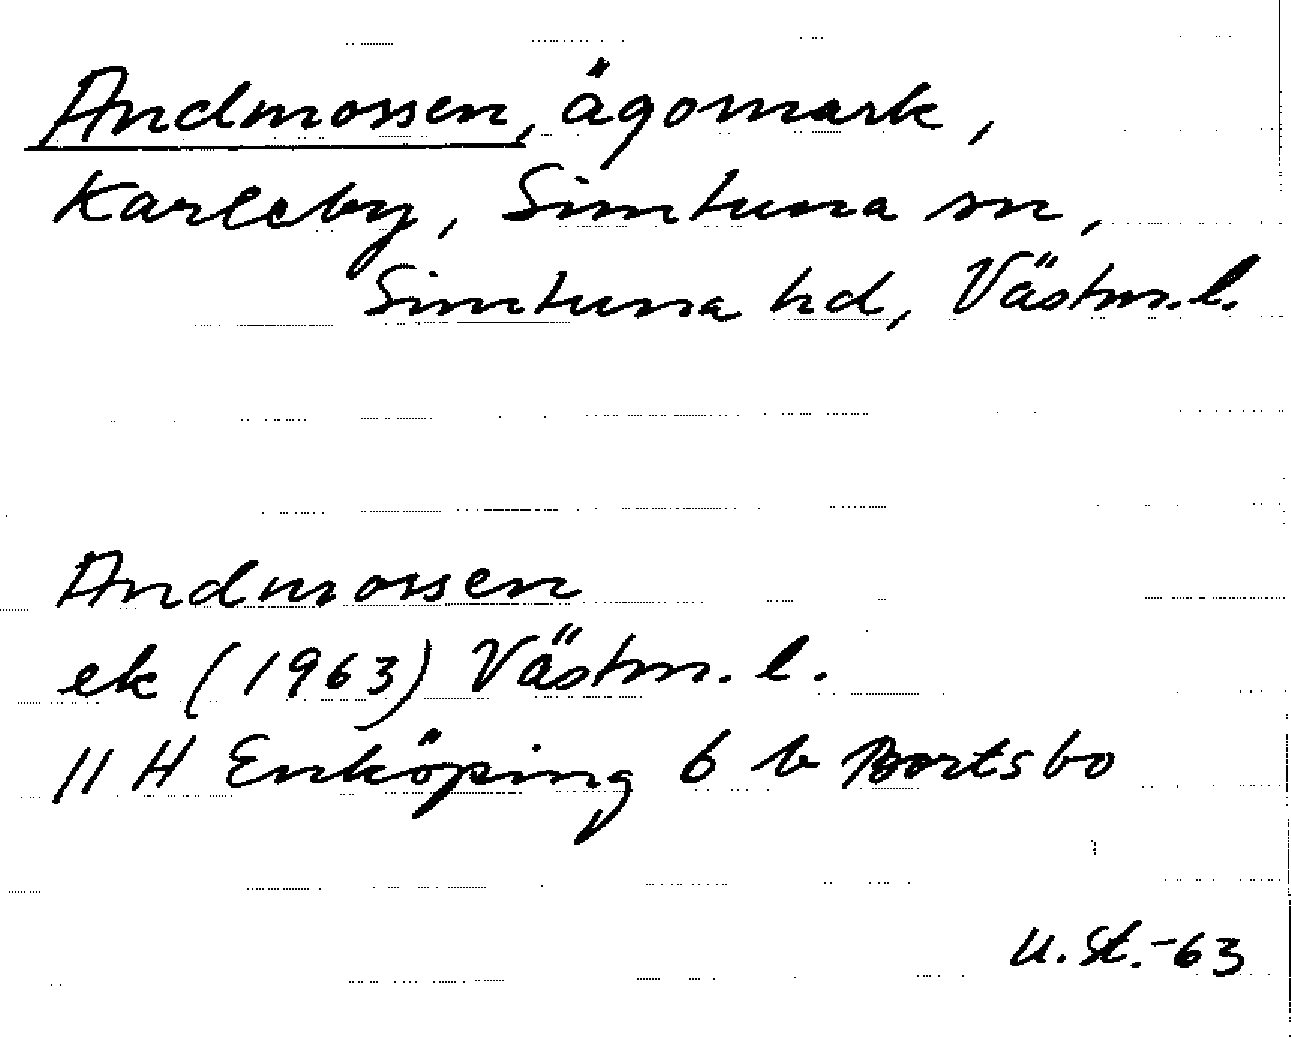 Andmossen, ägomark,
Karleby, Simtuna sn,
Simtuna hd, Västm.l.
Andmossen
ek (1963) Västm.l.
11 H Enköping 6 b Bortsbo
U.St.-63